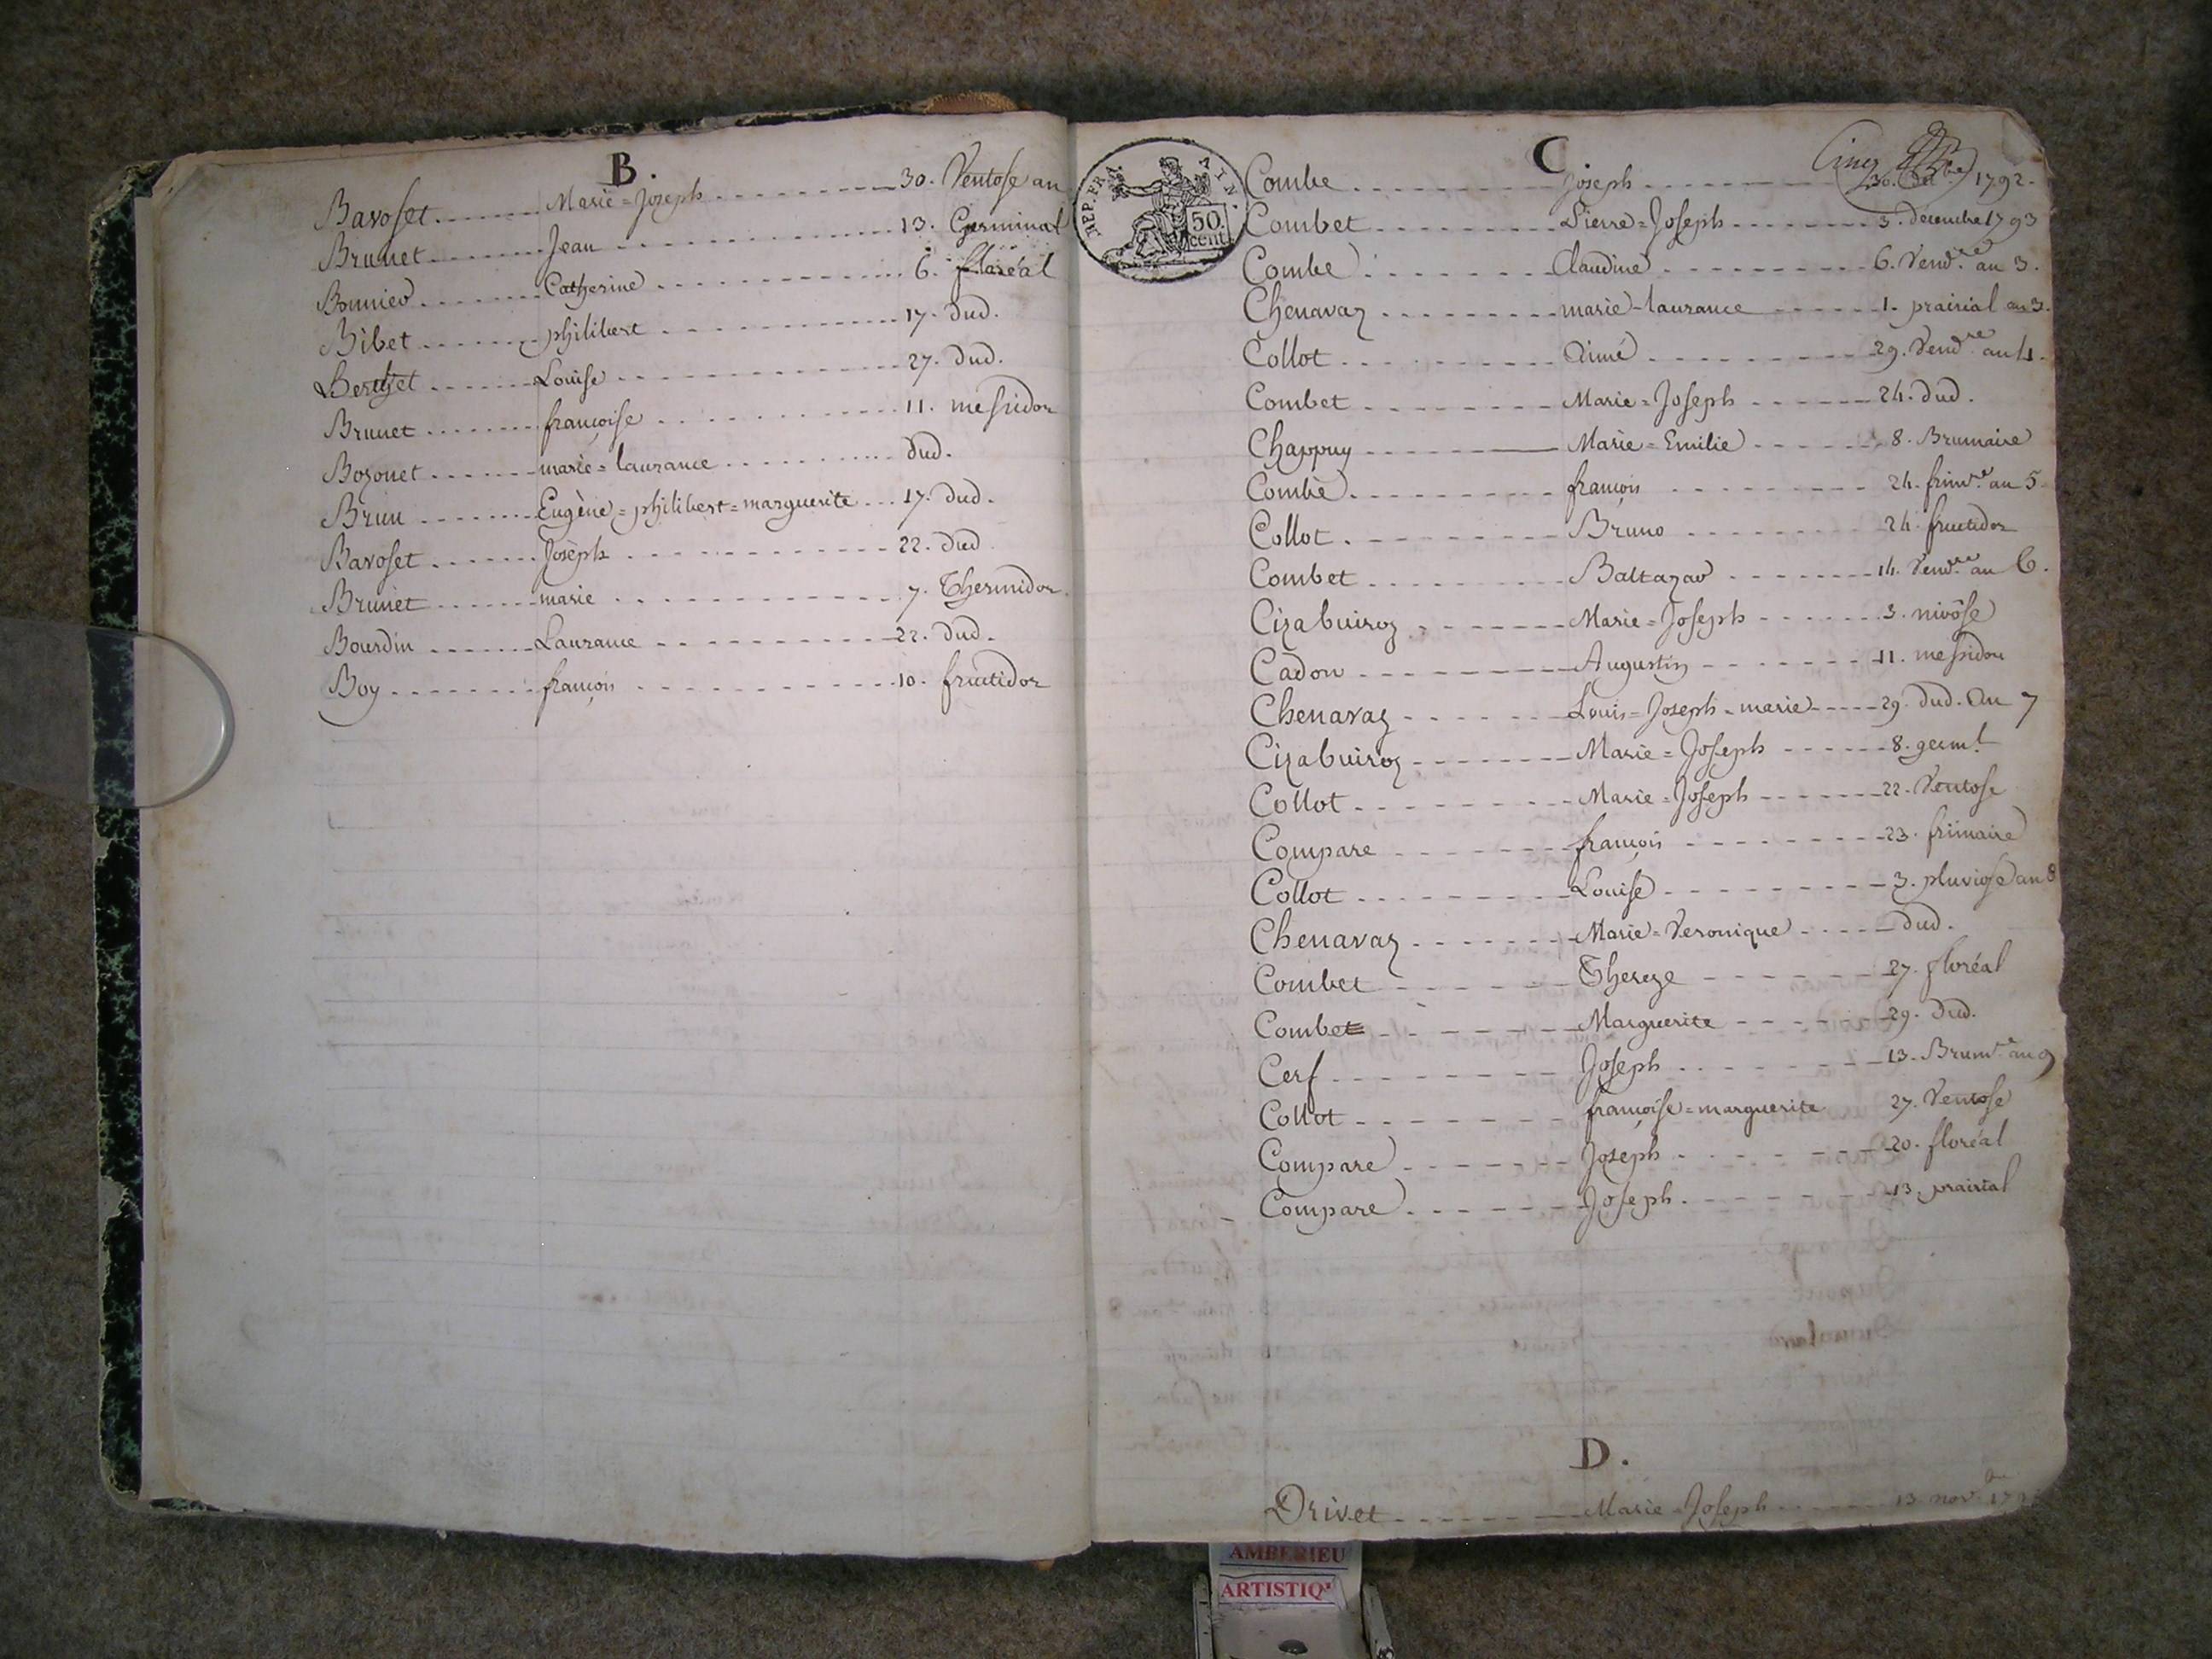 B.
Bavoset Marie=Joseph 30. Ventose an
Brunet Jean 13. Germinal
Bonnier Catherine 6. floréal
Bibet philibert 17. dud.
Berthet Louise 27. dud.
Brunet françoise 11. messidor
Bozonet marie=laurance dud.
Brun Eugène=philibert=marguerite 17. dud.
Bavoset Joseph 22. dud
Brunet marie 7. Thermidor
Bourdin Laurance 22. dud.
Boy françois 10. fructidor
REP. FRA
50. cent.
C.
Cinq
Combe Joseph 1792.
Combet Pierre=Joseph 3. décembre 1793
Combe Claudine 6. Vend.re an 3.
Chenavaz marie-laurance 1. prairial an 3.
Collot Aimé 29. Vend.re an 4.
Combet Marie=Joseph 24. dud.
Chappuy Marie=Emilie 8. Brumaire
Combe françois 24. frim.re an 5
Collot Bruno 24. fructidor
Combet Baltazar 14. Vend.re an 6.
Cizabuiroz Marie=Joseph 3. nivôse
Cadon Augustin 11. messidor
Chenavaz Louis=Joseph-marie 29. dud. an 7
Cizabuiroz Marie=Joseph 8. germ.l
Collot Marie=Joseph 22. Ventose
Compare françois 23. frimaire
Collot Louise 3. pluviose an 8
Chenavaz Marie=Veronique dud.
Combet Thereze 27. floréal
Combet Marguerite 29. dud.
Cerf Joseph 13. Brum.re an 9
Collot françoise=marguerite 27. Ventose
Compare Joseph 20. floréal
Compare Joseph 13. prairial
D.
Drivet Marie=Joseph 13. nov.
AMBERIEU
ARTISTIQ